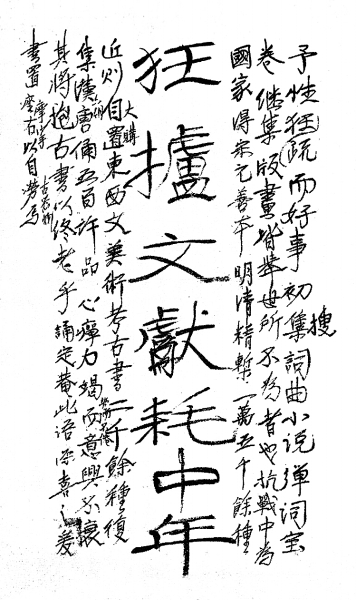 予性狂疏而好事初搜集詞曲小说弹词宝
卷继集版畫皆举世所不为者也抗戰中為
國家得宋元善本明清精槧一萬五千餘種
狂攎文獻耗中年
近则大購自置東西文美術考古書二千餘種復
集漢唐俑五百許品心瘁力竭而意興不衰
其將抱古書以終老乎誦定菴此语深喜之爰
書置座右以自劳焉